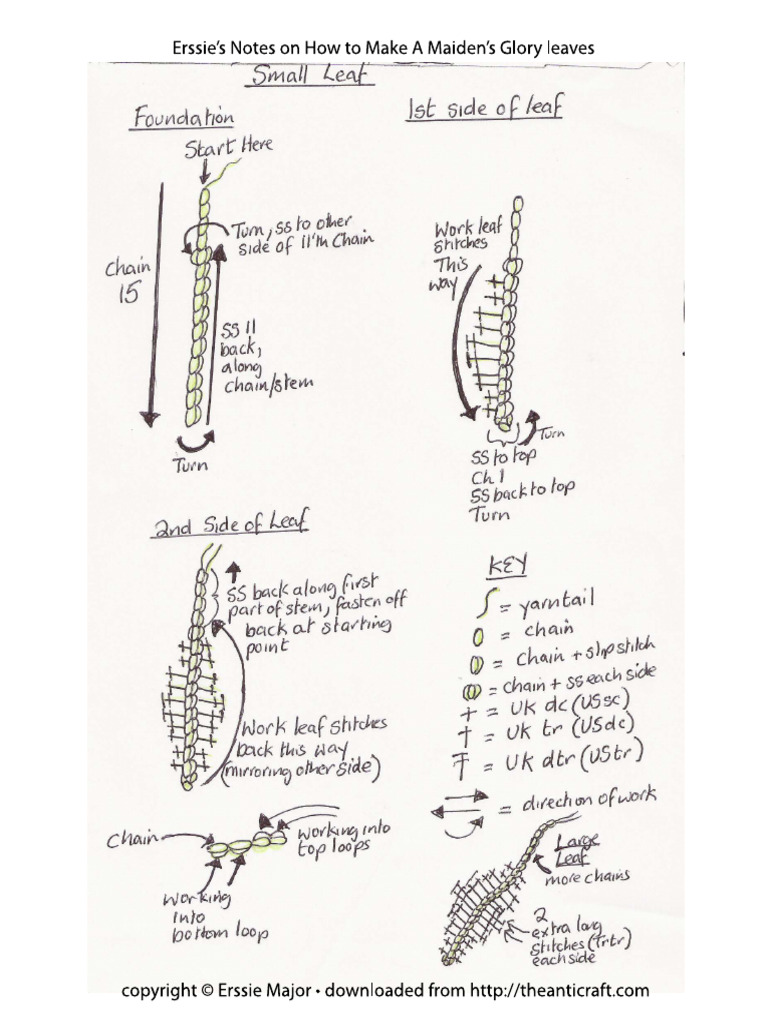 Erssie's Notes on How to Make A Maiden's Glory leaves
Small Leaf
Foundation
Start Here
Turn, SS to other
side of 11'th Chain
Chain
15
SS 11
back,
along
chain/stem
Turn
1st side of leaf
Work leaf
stitches
This
way
Turn
SS to top
Ch 1
SS back to top
Turn
2nd Side of Leaf
SS back along first
part of stem, fasten off
back at starting
point
Work leaf stitches
back this way
(mirroring other side)
Chain
Working into
top loops
Working
into
bottom loop
KEY
= yarntail
= chain
= Chain + slip stitch
= chain + SS each side
= UK dc (USsc)
= UK tr (USdc)
= UK dtr (UStr)
= direction of work
Large
Leaf
more chains
2
extra long
stitches (Trtr)
each side
copyright © Erssie Major • downloaded from http://theanticraft.com